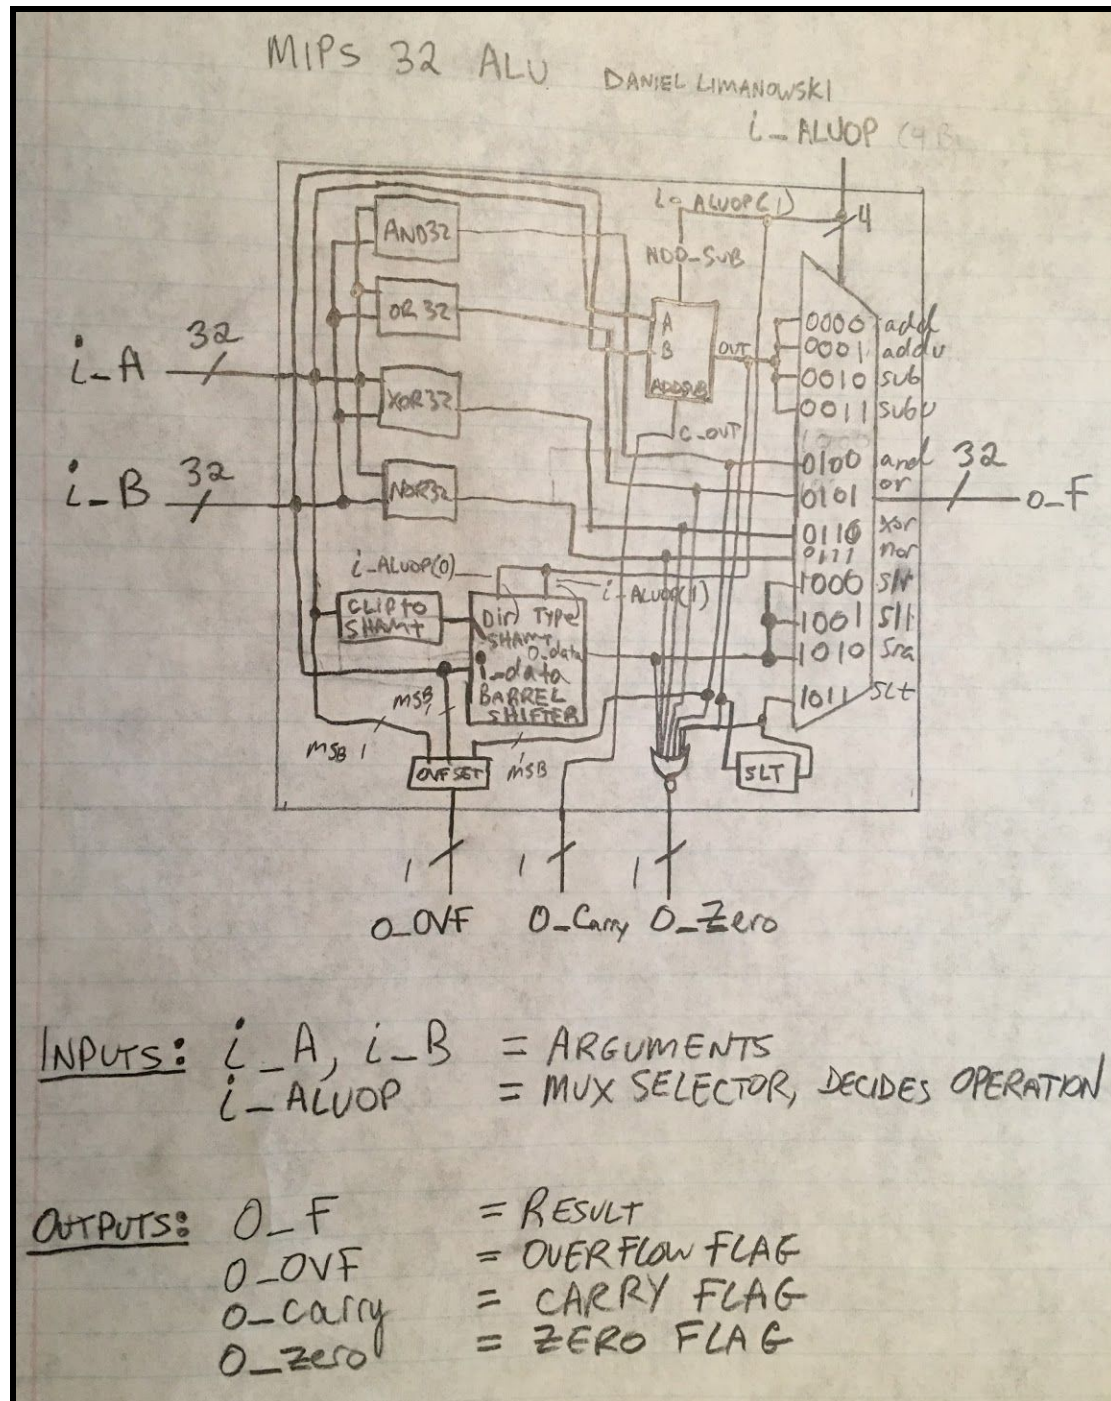 MIPS 32 ALU
DANIEL LIMANOWSKI
i_ALUOP (4 B
i_ALUOP(1)
4
AND32
ADD_SUB
OR 32
A
B
OUT
ADDSUB
C_OUT
0000 add
0001 addu
0010 sub
0011 subu
1000
0100 and
0101 or
0110 xor
0111 nor
1000
1001 sll
1010 sra
1011 slt
32
i_A
XOR32
32
i_B
NOR32
32
O_F
i_ALUOP(0)
i_ALUOP(1)
CLIP to
SHAMT
Dir Type
SHAMT
O_data
i_data
BARREL
SHIFTER
MSB 1
MSB
MSB
OVFSET
SLT
1
1
1
O_OVF
O_Carry
O_Zero
INPUTS: i_A, i_B = ARGUMENTS
i_ALUOP = MUX SELECTOR, DECIDES OPERATION
OUTPUTS: O_F = RESULT
O_OVF = OVERFLOW FLAG
O_carry = CARRY FLAG
O_zero = ZERO FLAG